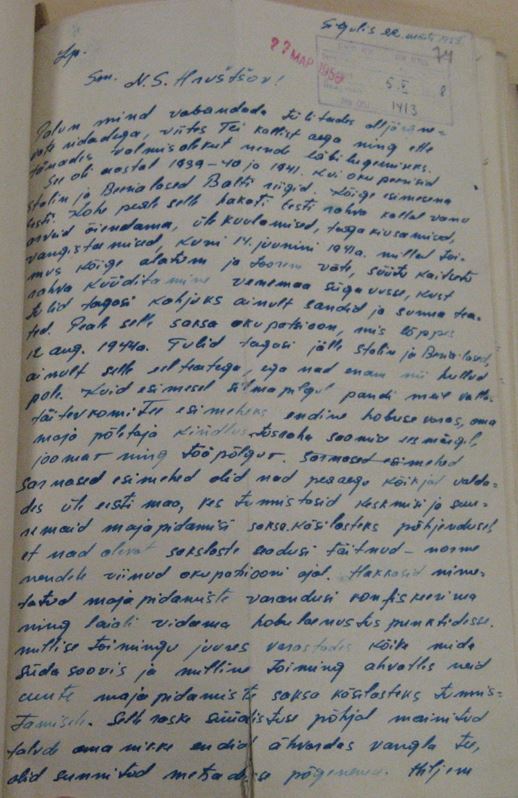 Sigulis 22. märts 1956
74
Lp.
22 MAP 1956
5. V 8
1413
Sm. N. S. Hruštšov!
Palun mind vabandada tülitades alljärgne-
vate ridadega, viites Teie kallist aega ning ette
tänades valmisoleku nende läbilugemiseks.
See oli aastal 1939-40 ja 1941. Kui okupeerisid
Stalin ja Beria lased Balti riigid. Kõige esimesena
Eesti. Kohe peale selle hakati Eesti rahva kallal vanu
arveid õiendama, üle kuulamised, taga kiusamised,
vangistamised, kuni 14. juunini 1941a. millal toi-
mus kõige alatum ja toorem väte, süütu kaitsetu
rahva küüditamine venemaa sügavusse, kust
tulid tagasi kahjuks ainult sandid ja surma tea-
ted. Peale selle saksa okupatsioon, mis lõppes
12 aug. 1944a. Tulid tagasi jälle Stalin ja Beria lased,
ainult selle eelteatega, ega nad enam nii hullud
pole. Kuid esimesel silmapilgul pandi meil valla
täitevkomitee esimeheks endine hobusevaras, oma
maja põletaja kindlustusraha saamise eesmärgil,
joomar ning tööpõlgur. Sarnased esimehed
sarnased esimehed olid nad peaaegu kõikjal valda-
des üle eesti maa, kes tunnistasid keskmisi ja suu-
remaid majapidamisi saksa käsilasteks põhjendusel
et nad olevat sakslaste seadusi täitnud - norme
nendele viinud okupatsiooni ajal. Hakkasid nime-
tatud majapidamiste varandusi konfiskeerima
ning laiali vidama hobulaenustus punktidesse.
millise toimingu juures varastades kõike mida
süda soovis ja milline toiming ahvatles neid
uute majapidamiste saksa käsilasteks tunnis-
tamisele. Selle raske süüdistuse põhjal mainitud
talude oma nikke endid ähvardas vangla tee,
olid sunnitud metsadesse põgenema. Hiljem